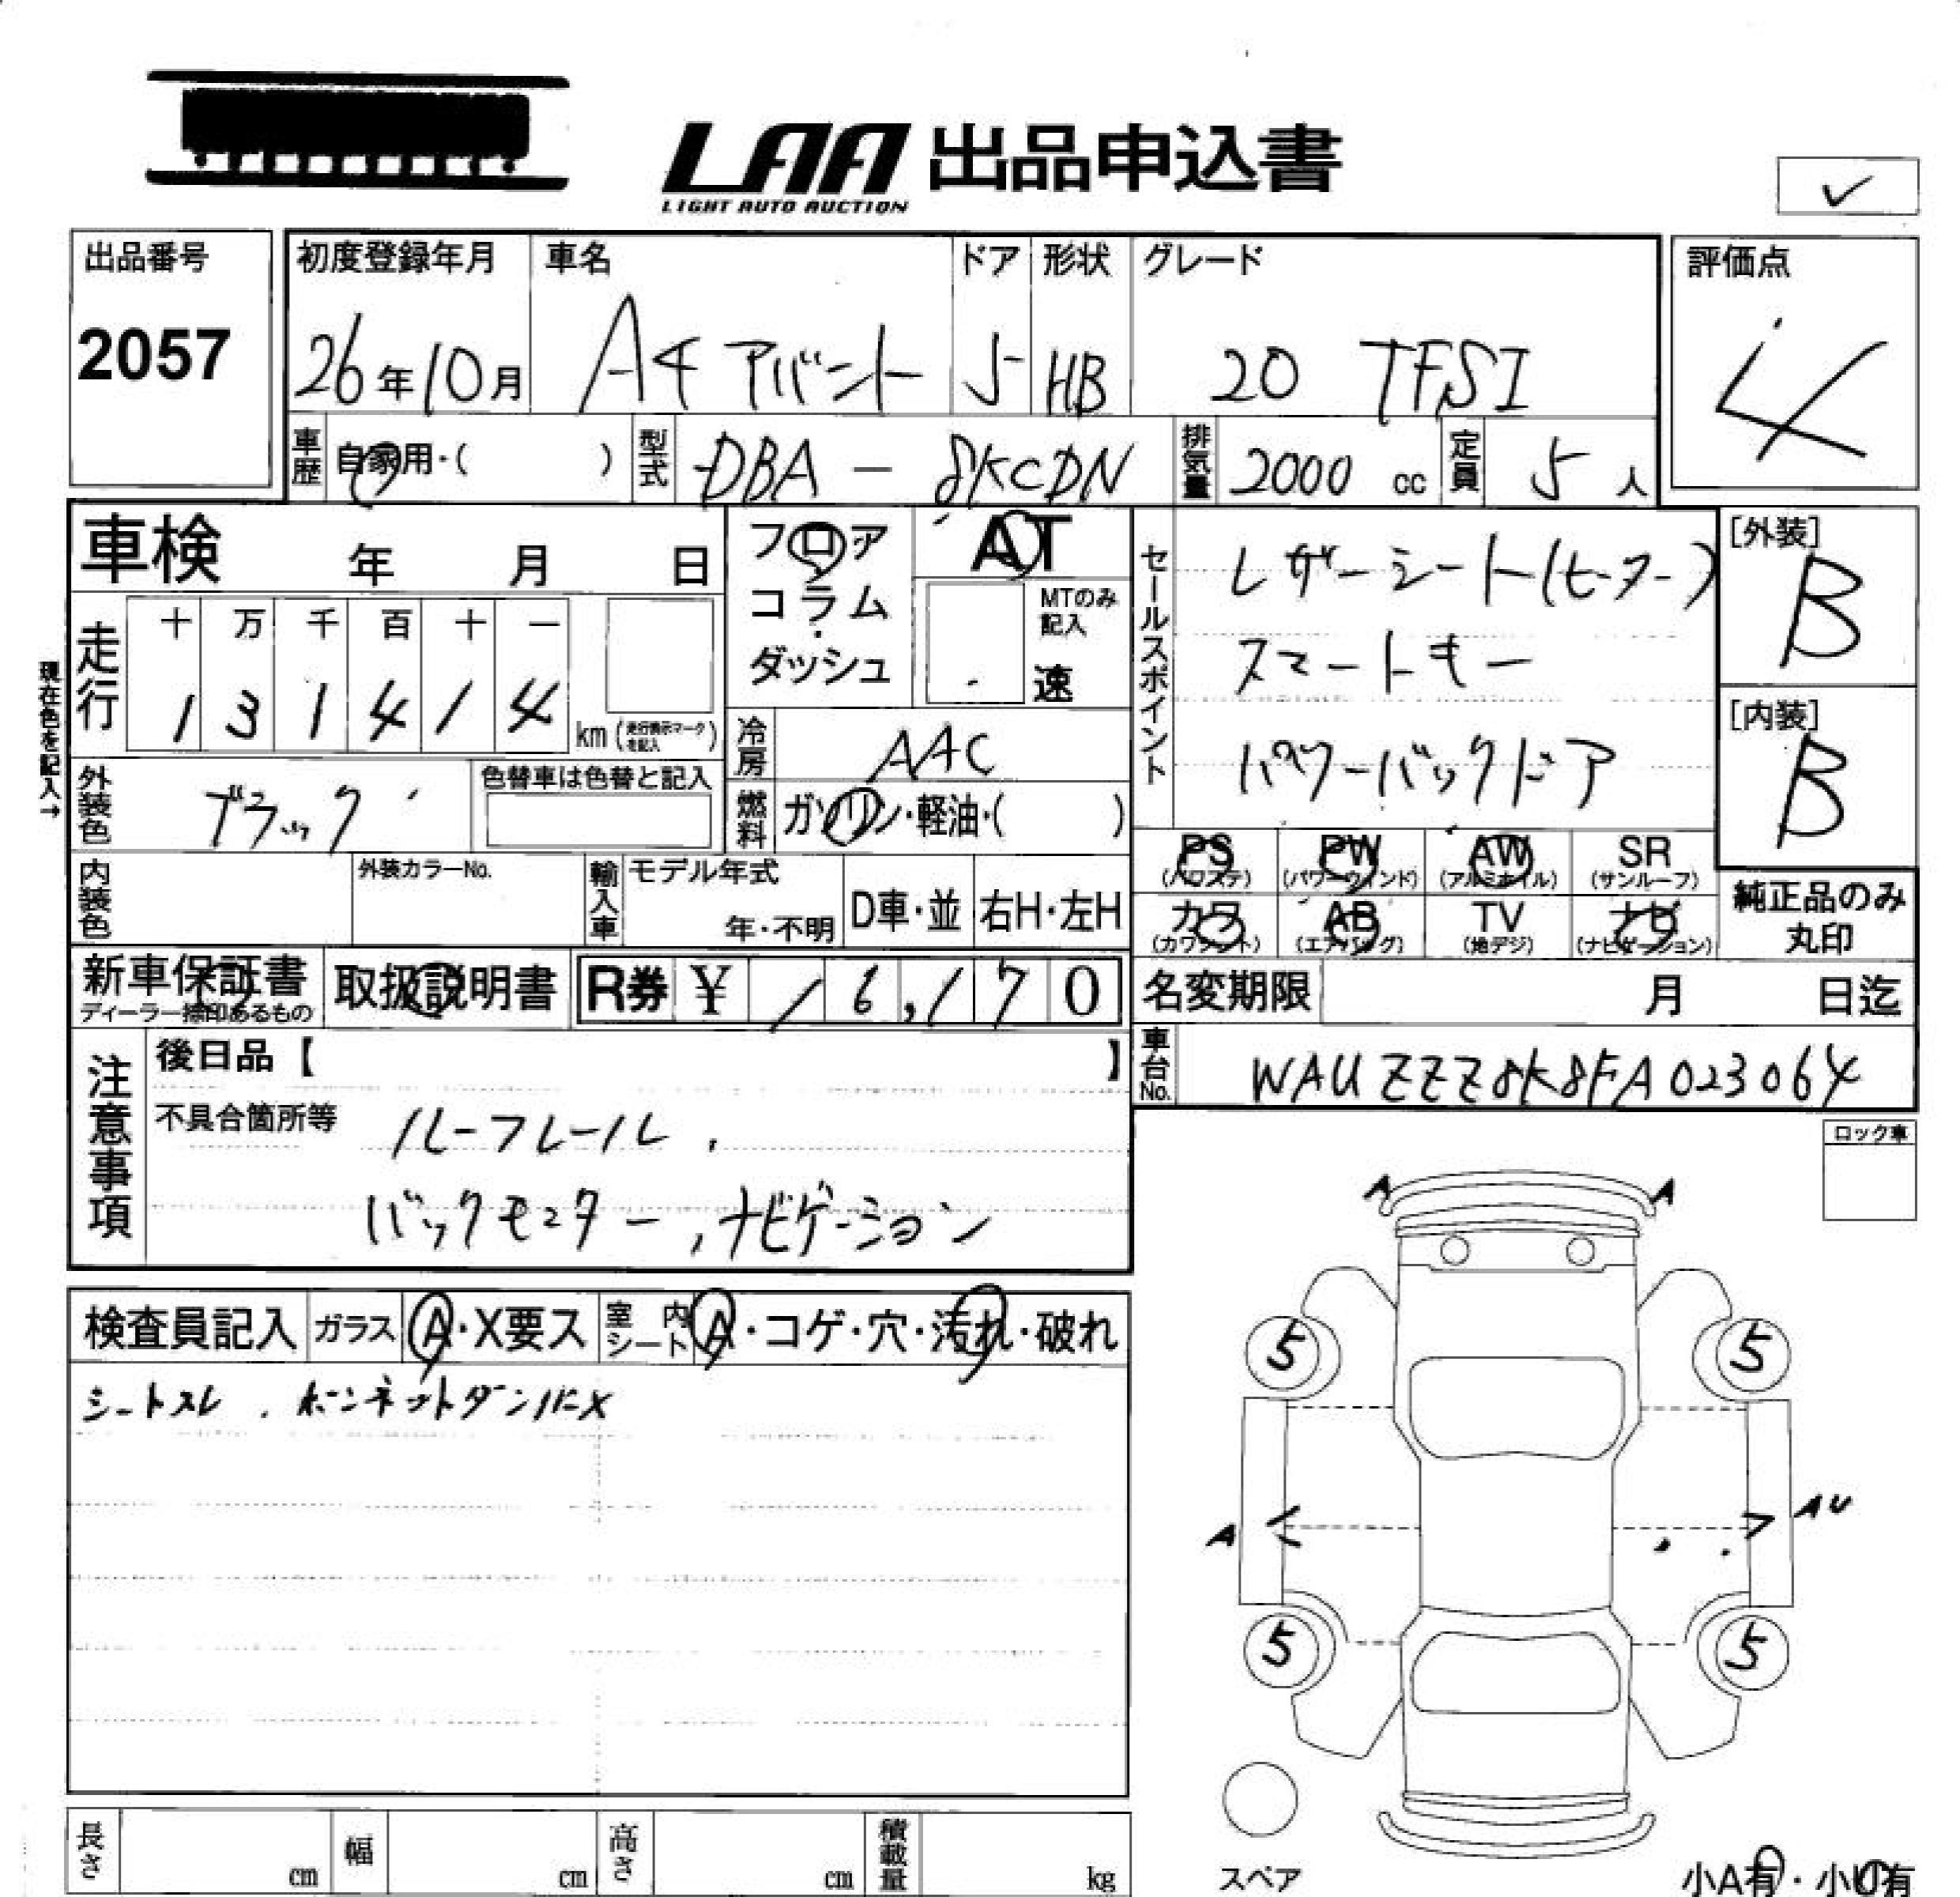 LAA 出品申込書
LIGHT AUTO AUCTION
✓
出品番号
2057
初度登録年月
26年10月
車名
A4 アバント
ドア
5
形状
HB
グレード
20 TFSI
評価点
4
車歴 自家用・( )
型式 DBA - 8KCDN
排気量 2000 cc
定員 5 人
車検 年 月 日
フロア
コラム
・
ダッシュ
AT
MTのみ
記入
速
セールスポイント
レザーシート(ヒーター)
スマートキー
パワーバックドア
[外装]
B
[内装]
B
現在色を記入→
走行
十 万 千 百 十 一
1 3 1 4 1 4
km
冷房 AAC
燃料 ガソリン・軽油・( )
外装色 ブラック
色替車は色替と記入
内装色
外装カラーNo.
輸入車
モデル年式
年・不明
D車・並
右H・左H
PS PW AW SR
(パワステ) (パワーウィンド) (アルミホイル) (サンルーフ)
カワ AB TV ナビ
(カワシート) (エアバッグ) (地デジ) (ナビゲーション)
純正品のみ
丸印
新車保証書
ディーラー捺印あるもの
取扱説明書
R券 ¥ 16,170
名変期限 月 日迄
車台No. WAUZZZ8K8FA023064
注意事項
後日品【 】
不具合箇所等 ルーフレール,
バックモニター,ナビゲーション
ロック車
検査員記入
ガラス A・X要ス
室内シート A・コゲ・穴・汚れ・破れ
シートスレ . ボンネットダンパーX
A A
5 5
A AU
5 5
スペア
小A有・小U有
長さ cm
幅 cm
高さ cm
積載量 kg